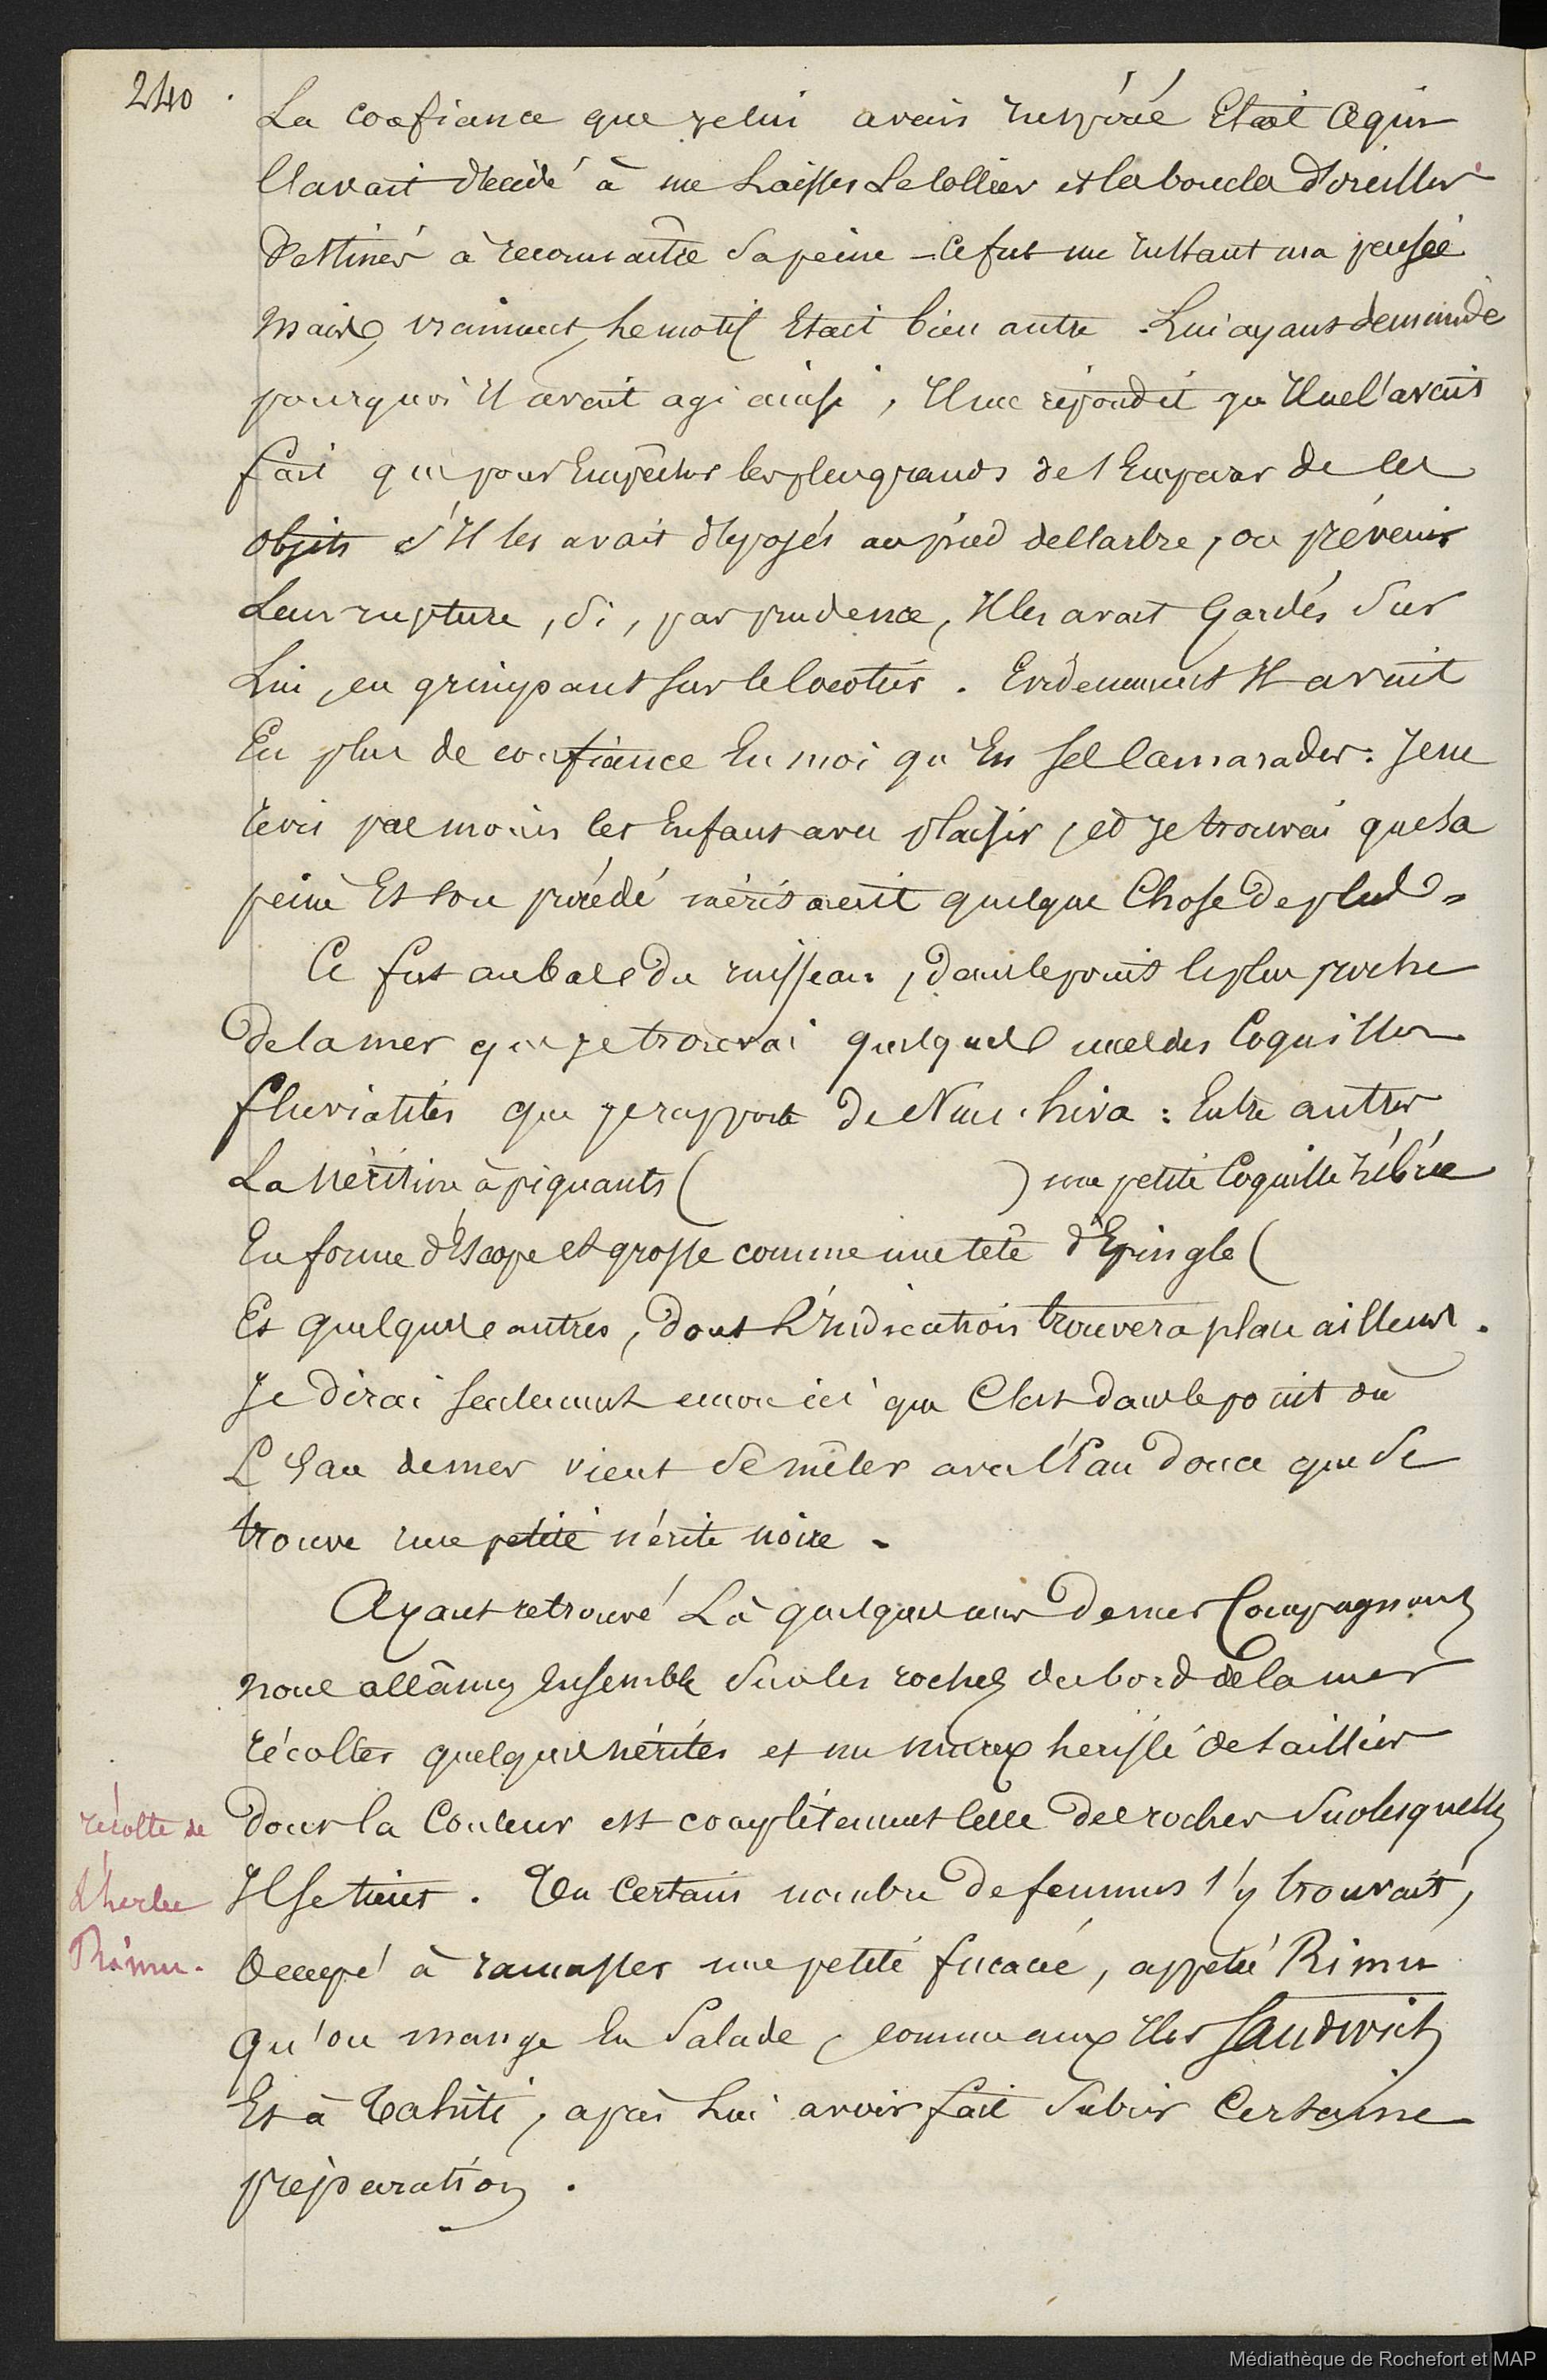 240.
La confiance que je lui avais inspirée Etait ce qui
l'avait décidé à me Laisser Le collier et les boucles d'oreilles
destinés à reconnaître Sa peine - Ce fut un instant ma pensée
mais, vraiment, le motif Etait bien autre. Lui ayant demandé
pourquoi il avait agi ainsi, Il me répondit qu'Il ne l'avait
fait que pour Empêcher les plus grands de s'Emparer de ces
objets s'Il les avait déposés au pied de l'arbre, ou prévenir
Leur rupture, Si, par prudence, Il les avait Gardés Sur
Lui, en grimpant sur le cocotier. Evidemment Il avait
Eu plus de confiance En moi qu'En ses camarades. Je ne
revis pas moins les Enfants avec plaisir, et je trouvai que sa
peine Et son procédé méritaient quelque Chose De plus.
Ce fut au bas Du ruisseau, Dans le point le plus proche
De la mer que je trouvai quelques unes des Coquilles
fluviatiles que je rapporte De Nou-hiva : Entre autres
La Néritine à piquants (                ) une petite Coquille zébrée
En forme d'Escope et grosse comme une tête d'Epingle (
Et quelques autres, Dont L'indication trouvera place ailleurs.
Je Dirai seulement encore ici que C'est dans le point où
L'Eau de mer vient Se mêler avec l'Eau Douce que Se
trouve une petite nérite noire.
Ayant retrouvé Là quelques uns De mes Compagnons
nous allâmes Ensemble Sur les roches du bord de la mer
récolter quelques nérites et un murex herissé de saillies
Dont la Couleur est complètement celle Des roches Sur lesquelles
Il se tient. Un Certain nombre De femmes s'y trouvait,
Occupé à ramasser une petite fucacée, appelée Rimu
qu'on mange En Salade, comme aux Iles Sandwich
Et à Tahiti, après Lui avoir fait Subir Certaine
préparation.
récolte de
l'herbe
Rimu.
Médiathèque de Rochefort et MAP